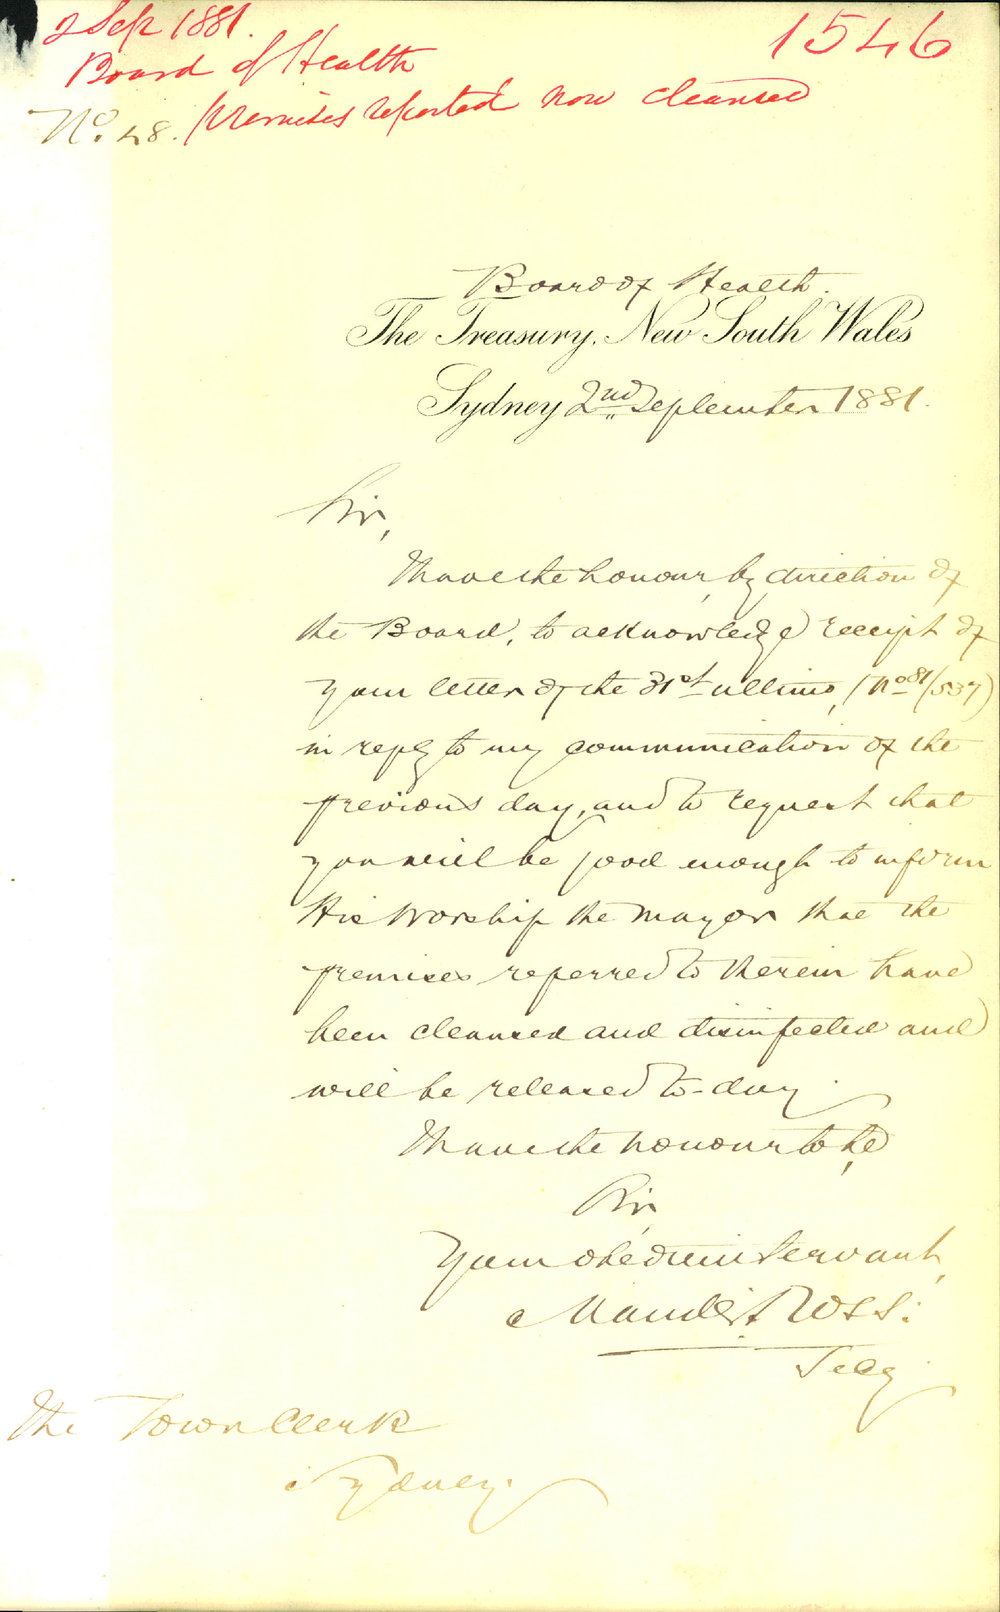 2 Sep 1881.
1546
Board of Health
premises reported now cleansed
No. 48.
Board of Health.
The Treasury, New South Wales
Sydney 2nd September 1881.
Sir,
I have the honour, by direction of
the Board, to acknowledge receipt of
your letter of the 31st ultimo, (No 81/537)
in reply to my communication of the
previous day, and to request that
you will be good enough to inform
His Worship the Mayor that the
premises referred to therein have
been cleansed and disinfected and
will be released to-day.
I have the honour to be,
Sir,
Your obedient Servant,
Secy
The Town Clerk
Sydney.